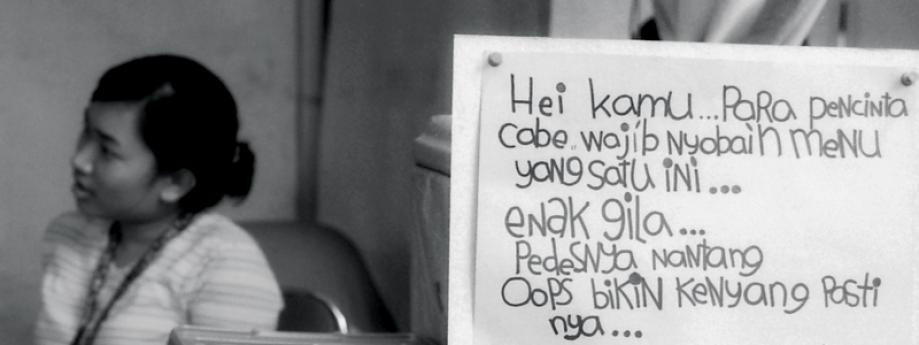 Hei kamu...PaRa pencinta
cabe..wajib Nyobain meNu
yang satu iNi...
eNak gila...
PedesNya NaNtang
Oops bikiN KeNyang Pasti
nya...